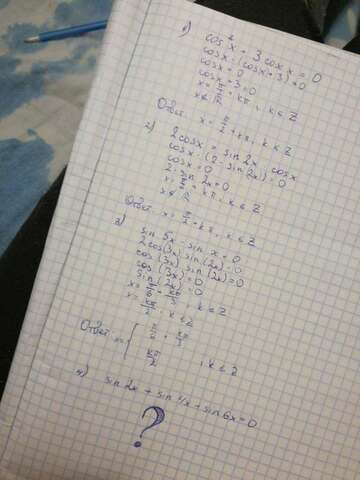 1) cos²x + 3 cos x = 0
cos x · (cos x + 3) = 0
cos x = 0
cos x + 3 = 0
x = π/2 + kπ, k ∈ Z
x ∉ R
Ответ: x = π/2 + kπ, k ∈ Z
2) 2 cos x = sin 2x · cos x
cos x · (2 - sin(2x)) = 0
cos x = 0
2 - sin 2x = 0
x = π/2 + kπ, k ∈ Z
x ∉ R
Ответ: x = π/2 + kπ, k ∈ Z
3) sin 5x - sin x = 0
2cos(3x) · sin(2x) = 0
cos(3x) · sin(2x) = 0
cos(3x) = 0
sin(2x) = 0
x = π/6 + kπ/3, k ∈ Z
x = kπ/2, k ∈ Z
Ответ: x = { π/6 + kπ/3
kπ/2, k ∈ Z
4) sin 2x + sin 4x + sin 6x = 0
?